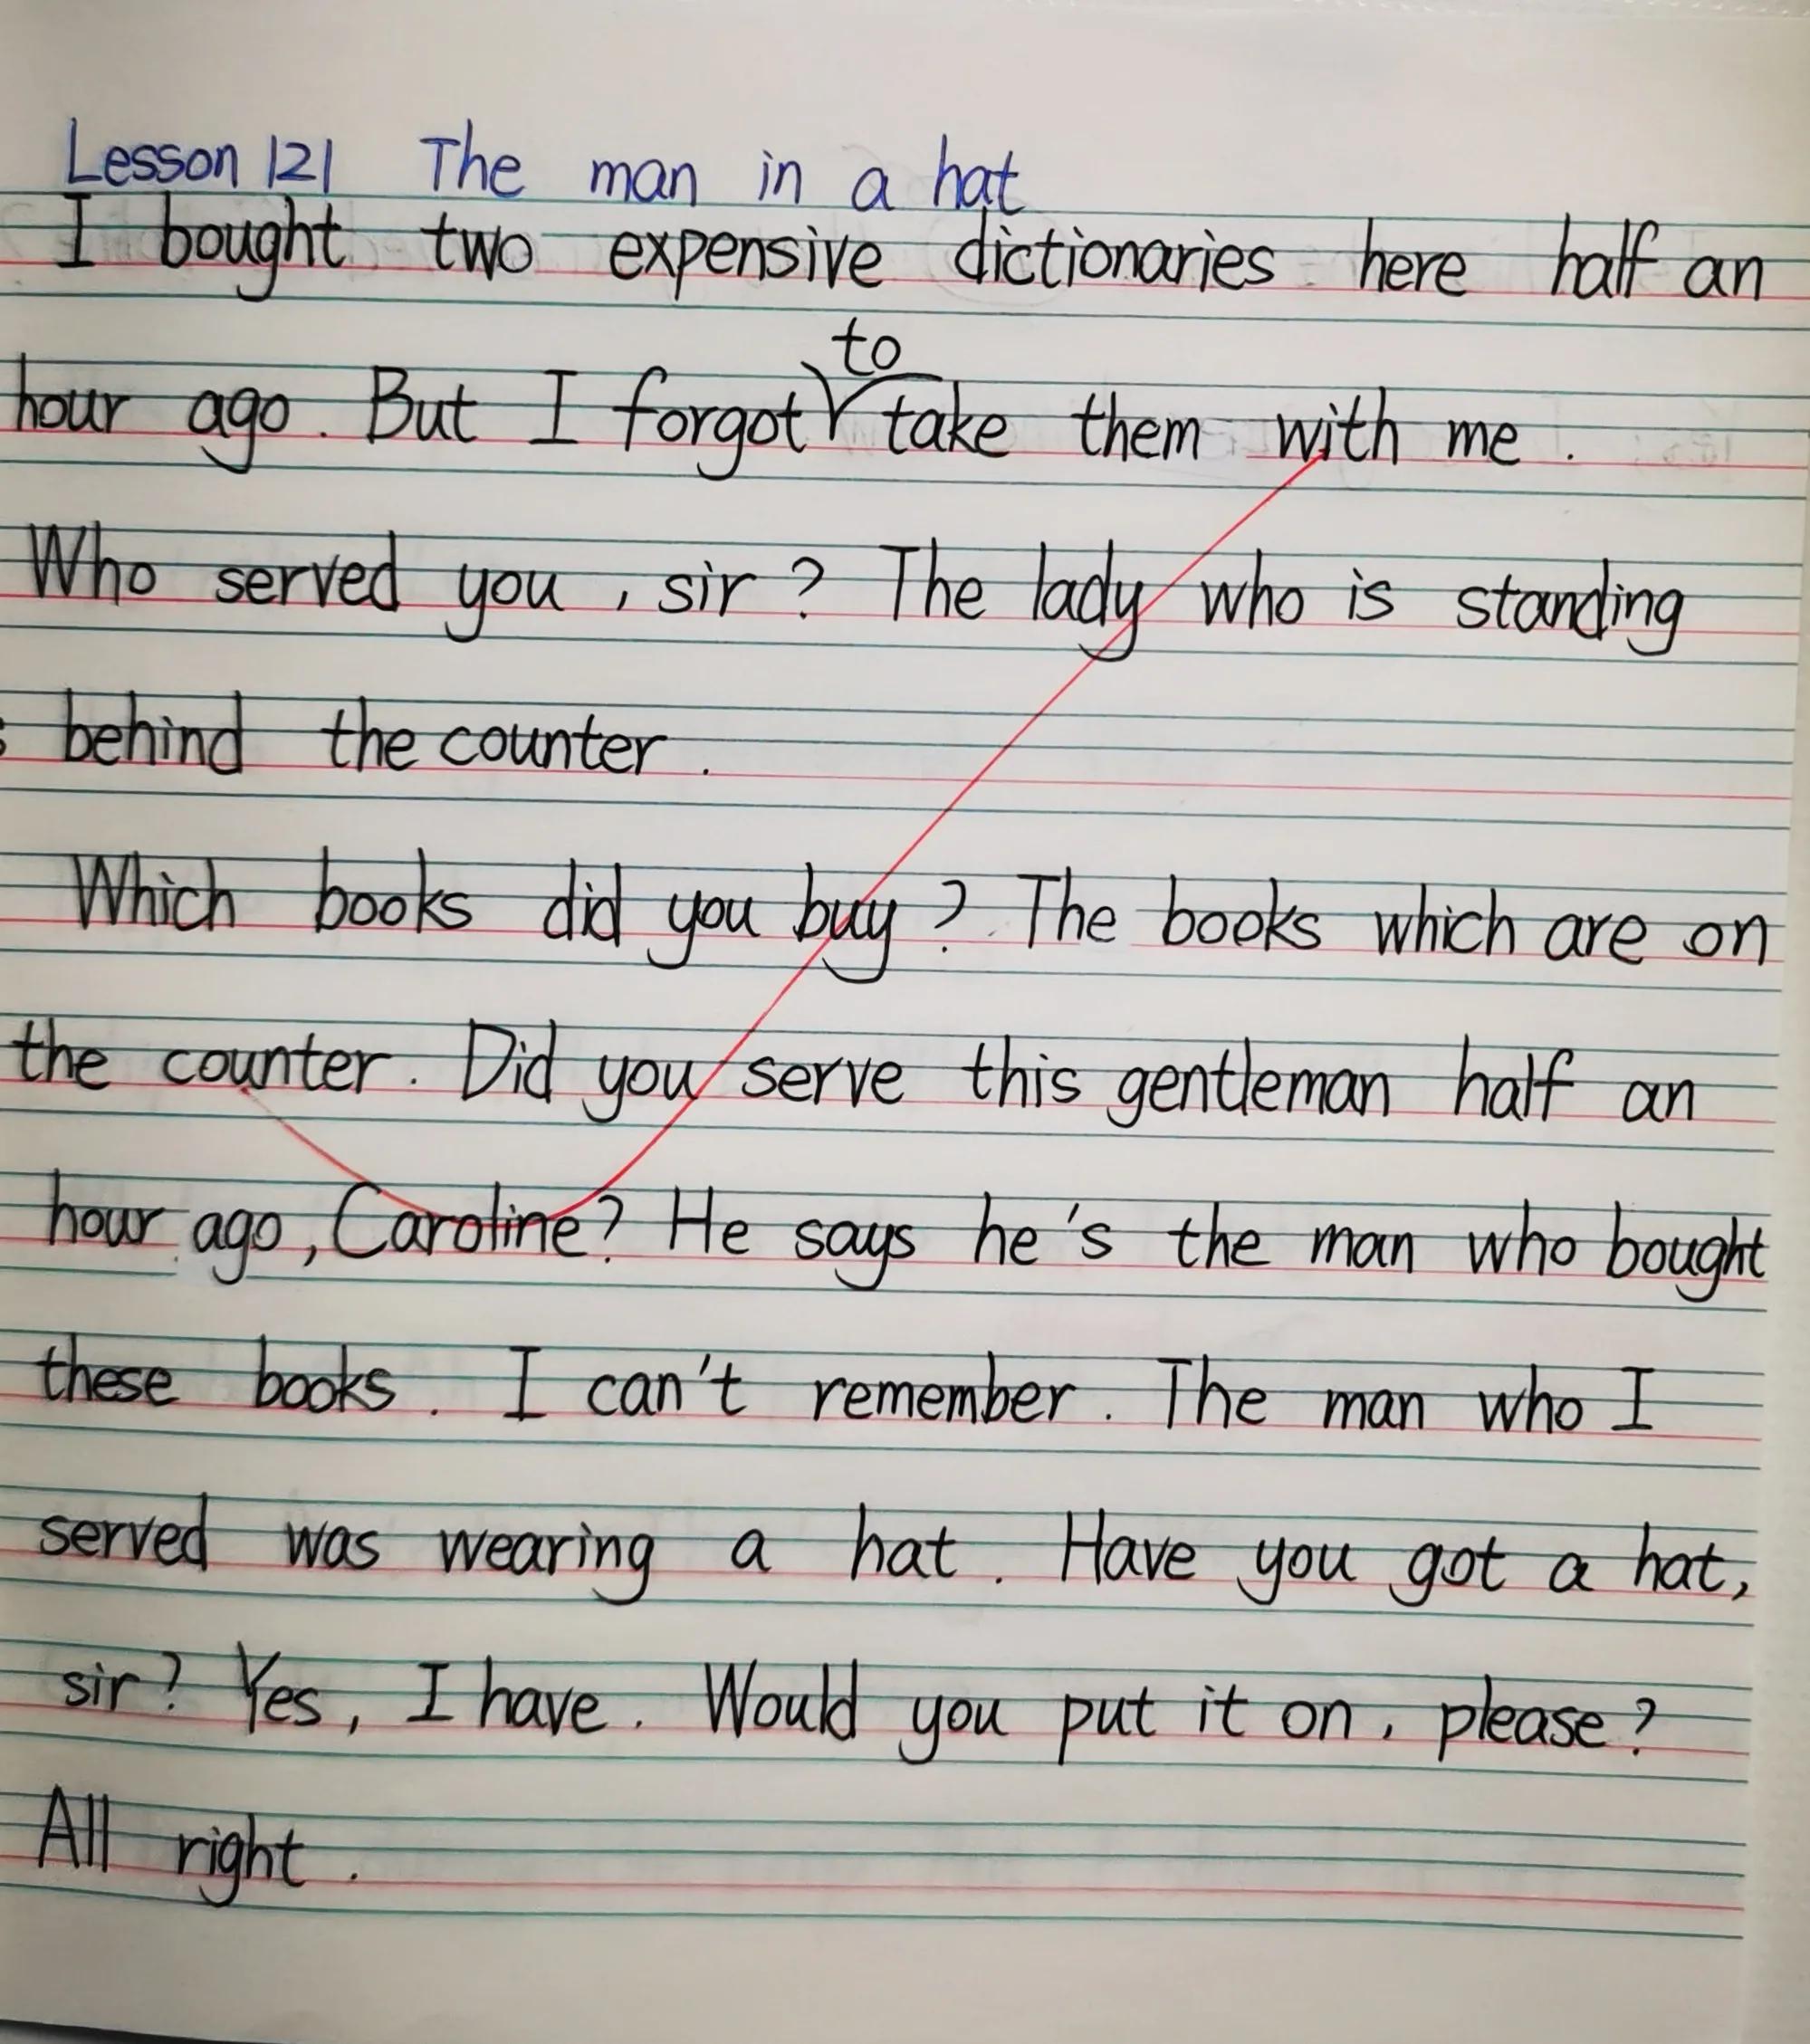 Lesson 121 The man in a hat
I bought two expensive dictionaries here half an
hour ago. But I forgot to take them with me.
Who served you, sir? The lady who is standing
behind the counter.
Which books did you buy? The books which are on
the counter. Did you serve this gentleman half an
hour ago, Caroline? He says he's the man who bought
these books. I can't remember. The man who I
served was wearing a hat. Have you got a hat,
sir? Yes, I have. Would you put it on, please?
All right.